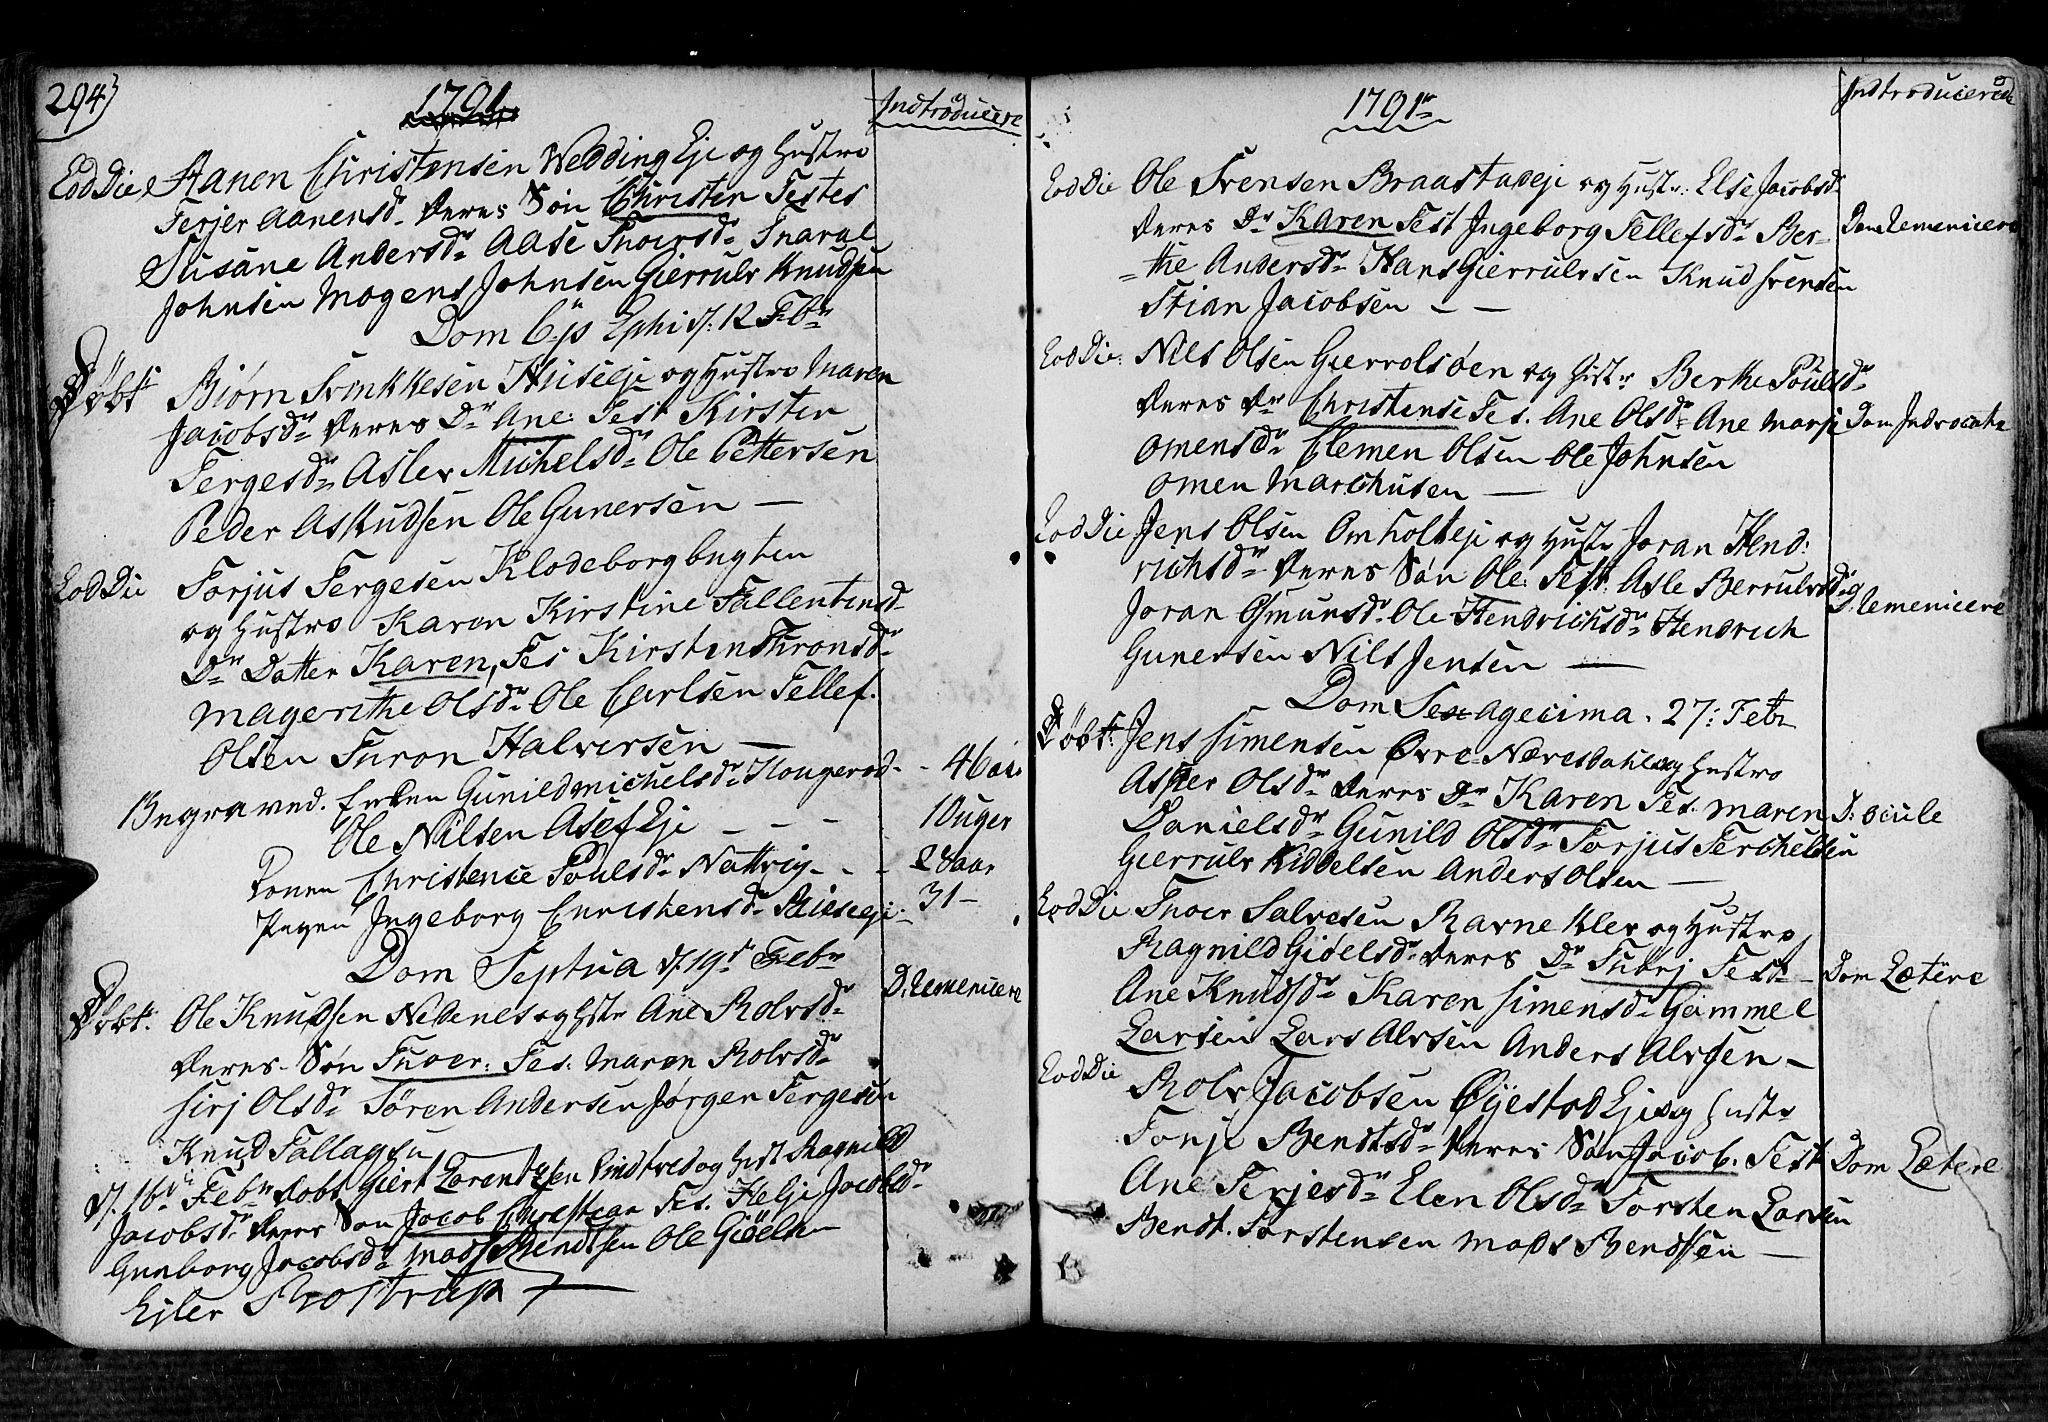 294)
1791
Indtroducere
Eod Die Aanen Christensen Wedding Eje og Hustro
Terjer Aanensd. deres Søn Christen Testes
Susane Andersdr Aase Thoersdr Snarul
Johnsen Mogens Johnsen Gierrulv Knudsen
Dom 6 p Ephi d: 12 Febr
Døbt Biørn Svinkkesen Huseeje og Hustro Maren
Jacobsdr deres Dr Ane: Test Kirsten
Tergesdr Aslev Michelsdr Ole Pettersen
Peder Askudsen Ole Gunersen —
Eod Die Torjus Tergesen Klodeborgbugten
og Hustro Karen Kirstine Fallentinsd.
Dr Datter Karen, Tes Kirsten Thronsdr
Magerethe Olsdr Ole Carlsen Tellef.
Olsen Turon Halversen —
Begraved. Enken Gunild Michelsdr Hougerød - - 46 aar
Ole Nilsen Asef Eje - - - 10 uger
Konen Christence Poulsdr Nattvig - - - 28 aar
Pigen Ingeborg Christensdr Riiseeje - 31 -
Dom Septua d. 19de Febr
Døbt. Ole Knudsen Nedenes og Hstr Ane Rolvsdr D. Remenicere
deres Søn Thoer: Tes. Maren Rolvsdr
Sirj Olsdr Søren Andersen Jørgen Tergesen
Knud Tallagsen
d. 16de Febr døbt Giert Lorentzen Vindtved og Hust Ragnild
Jacobsdr deres Søn Jacob Christian Tes. Helje Jacobsdr
Gunborg Jacobsdr Mads Bendtsen Ole Giøelsen
Ejler Rostrup
1791
Indtroducerede
Eod Die Ole Svensen Braastadeje og Hustr: Else Jacobsd.
deres Dr Karen Test Ingeborg Tellefsdr Ber- Dom Remenicere
-the Andersdr Hans Gierrulvsen Knud Svensen
Stian Jacobsen - -
Eod Die: Nils Olsen Gierrolsøen og Hist: Berthe Poulsdr
deres Dr Christense Tes. Ane Olsdr Ane Marje Dom Indvocate
Omensdr Clemen Olsen Ole Johnsen
Omen Marchusen —
Eod Die Jens Olsen Omholteje og Hustr Joran Hend:
richsdr deres Søn Ole: Test. Asle Berrulvsdr
Joran Osmunsdr Ole Hendrichsdr Hendrich D. Remenicere
Gunersen Nils Jensen —
Dom Sexagecima. 27: Febr
Døbt: Jens Simensen Øvre Næresdahl og Hustro
Asper Olsdr deres Dr Karen Tes. Maren D: Ocule
Danielsdr Gunild Olsdr Torjus Terchelsen
Gierrulv Kiddelsen Anders Olsen —
Eod Die Thoer Salvesen Ravneklev og Hustro
Ragnild Giøelsdr deres Dr Tubrj Test Dom Lætere
Ane Knudsdr Karen Simensdr Gammel
Larsen Lars Alvsen Anders Alvsen —
Eod Die Rolv Jacobsen Øyestad Eje og Hustr
Tonje Bendtsdr deres Søn Jacob: Test Dom Lætere
Ane Terjesdr Elen Olsdr Torsten Larsen
Bendt. Torstensen Mads Bendsen —